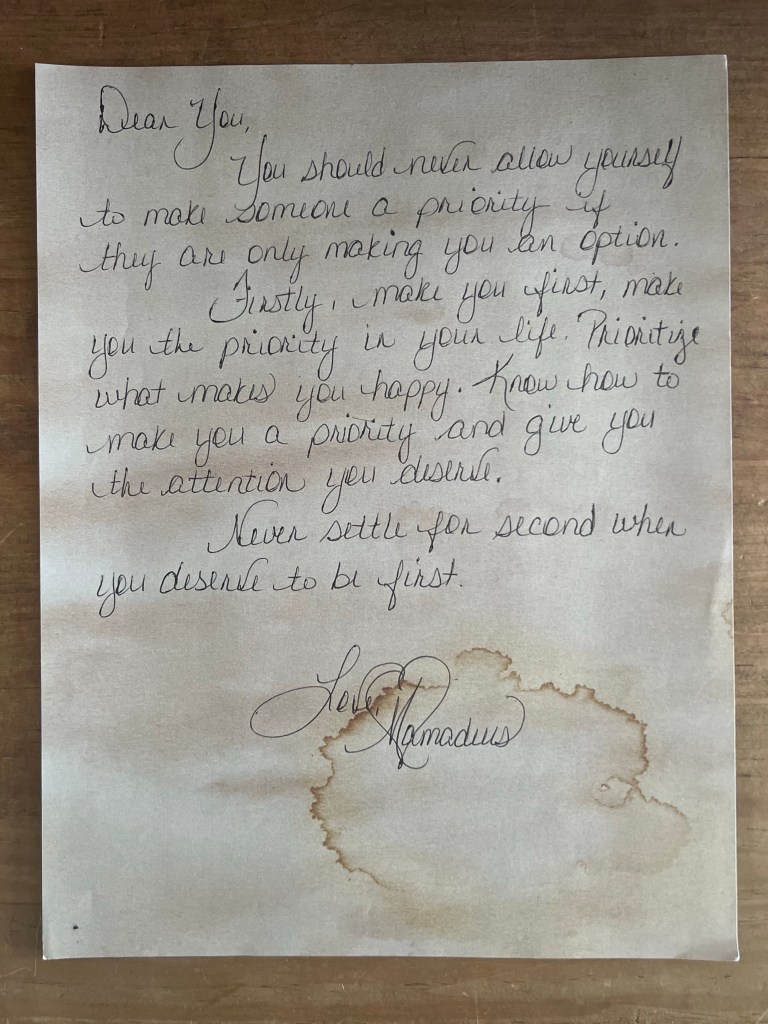 Dear You,
You should never allow yourself
to make someone a priority if
they are only making you an option.
Firstly, make you first, make
you the priority in your life. Prioritize
what makes you happy. Know how to
make you a priority and give you
the attention you deserve.
Never settle for second when
you deserve to be first.
Love,
Mamadeus